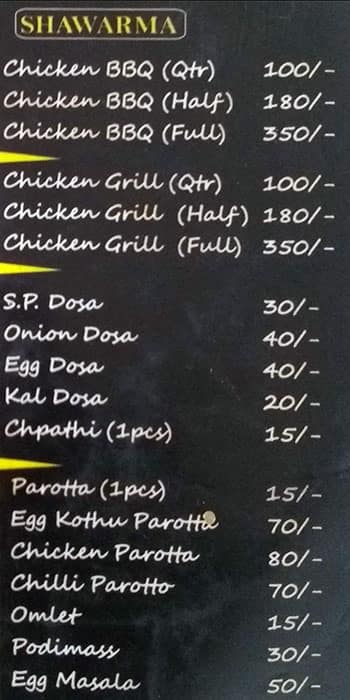 SHAWARMA
Chicken BBQ (Qtr) 100/-
Chicken BBQ (Half) 180/-
Chicken BBQ (Full) 350/-
Chicken Grill (Qtr) 100/-
Chicken Grill (Half) 180/-
Chicken Grill (Full) 350/-
S.P. Dosa 30/-
Onion Dosa 40/-
Egg Dosa 40/-
Kal Dosa 20/-
Chpathi (1pcs) 15/-
Parotta (1pcs) 15/-
Egg Kothu Parotta 70/-
Chicken Parotta 80/-
Chilli Parotto 70/-
Omlet 15/-
Podimass 30/-
Egg Masala 50/-